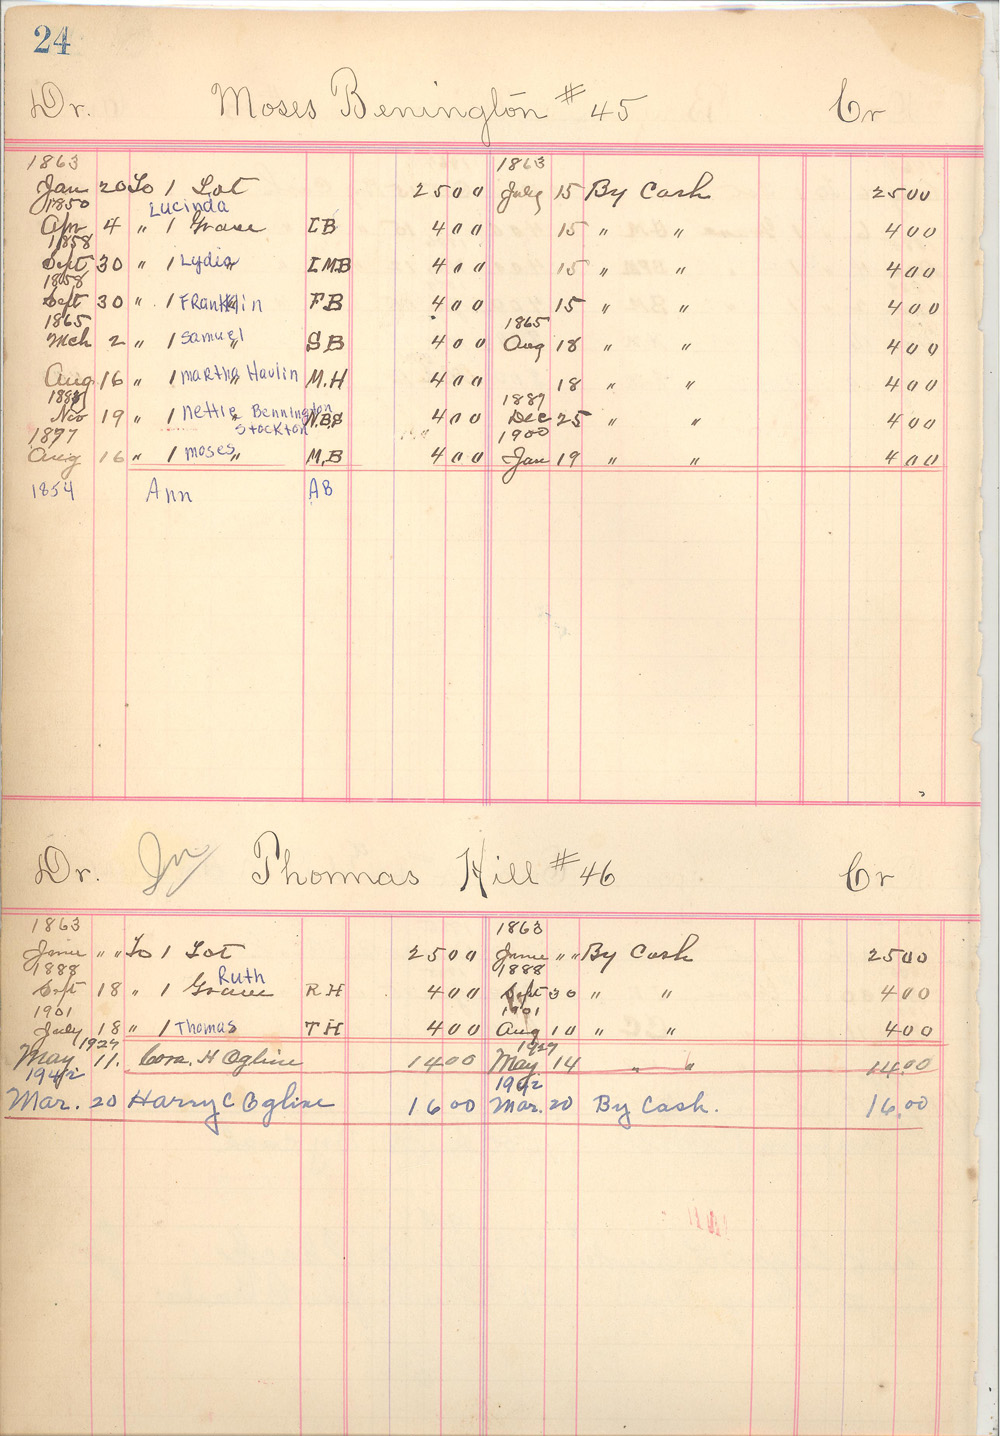 24
Dr. Moses Benington # 45 Cr
1863 1863
Jan 20 To 1 Lot 2500 July 15 By Cash 2500
1850 Lucinda
Apr 4 " 1 Grave LB 400 15 " " 400
1858
Sept 30 " 1 Lydia " LMB 400 15 " " 400
1858
Sept 30 " 1 Franklin FB 400 15 " " 400
1865 1865
Mch 2 " 1 Samuel " SB 400 Aug 18 " " 400
Aug 16 " 1 Martha Havlin M.H 400 18 " " 400
1889
Nov 19 " 1 Nettie Bennington Stockton N.B.S 400 Dec 25 " " 400
1897 1900
Aug 16 " 1 Moses " M,B 400 Jan 19 " " 400
1854 Ann AB
Dr. Jr Thomas Hill # 46 Cr
1863 1863
June " " To 1 Lot 2500 June " " By Cash 2500
1888 Ruth 1888
Sept 18 " 1 Grave RH 400 Sept 30 " " 400
1901 1901
July 18 " 1 Thomas TH 400 Aug 10 " " 400
1927 1927
May 11. Cora. H Ogline 1400 May 14 " " 14.00
1942 1942
Mar. 20 Harry C Ogline 1600 Mar. 20 By Cash. 16.00